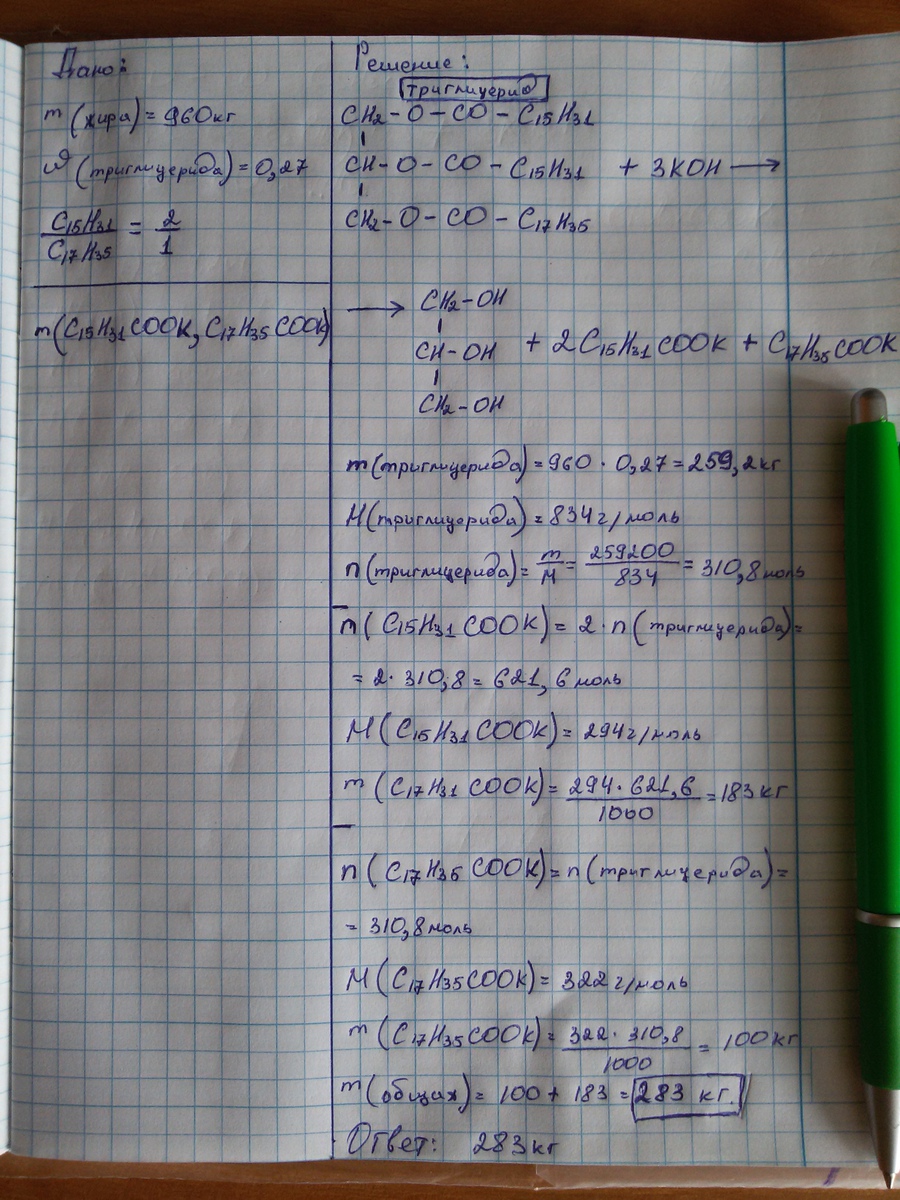 Дано:
m (жира) = 960кг
ω (триглицерида) = 0,27
C15H31 / C17H35 = 2 / 1
m(C15H31COOK, C17H35COOK)
Решение:
триглицерид
CH2 - O - CO - C15H31
CH - O - CO - C15H31 + 3KOH ⟶
CH2 - O - CO - C17H35
⟶ CH2 - OH
CH - OH + 2C15H31COOK + C17H35COOK
CH2 - OH
m(триглицерида) = 960 · 0,27 = 259,2кг
M(триглицерида) = 834г/моль
n(триглицерида) = m / M = 259200 / 834 = 310,8моль
n(C15H31COOK) = 2 · n(триглицерида) =
= 2 · 310,8 = 621,6моль
M(C15H31COOK) = 294г/моль
m(C17H31COOK) = 294 · 621,6 / 1000 = 183кг
n(C17H35COOK) = n(триглицерида) =
= 310,8моль
M(C17H35COOK) = 322г/моль
m(C17H35COOK) = 322 · 310,8 / 1000 = 100кг
m(общих) = 100 + 183 = 283 кг.
Ответ: 283кг